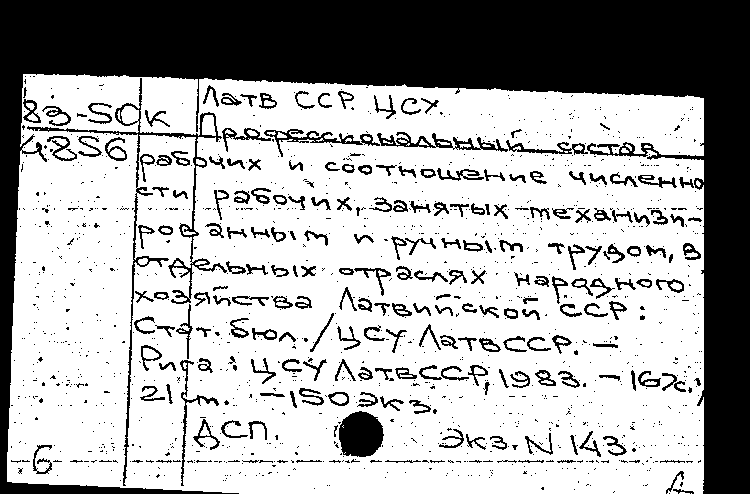 Латв ССР. ЦСУ.
83-50к Профессиональный состав
4856 рабочих и соотношение численно
сти рабочих, занятых механизи-
рованным и ручным трудом, в
отдельных отраслях народного
хозяйства Латвийской ССР:
Стат. бюл./ ЦСУ ЛатвССР. —
Рига: ЦСУ ЛатвССР, 1983. — 167с.;
21 ст. — 150 экз.
ДСП. Экз. N 143.
6